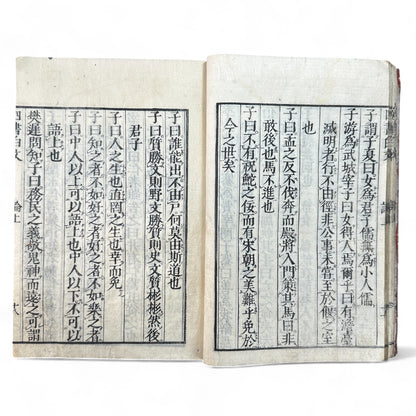 子謂子夏曰女爲君子儒無爲小人儒
子游爲武城宰子曰女得人焉爾乎曰有澹臺
滅明者行不由徑非公事未嘗至於偃之室
也
子曰孟之反不伐奔而殿將入門策其馬曰非
敢後也馬不進也
子曰不有祝鮀之佞而有宋朝之美難乎免於
今之世矣
子曰誰能出不由戶何莫由斯道也
子曰質勝文則野文勝質則史文質彬彬然後
君子
子曰人之生也直罔之生也幸而免
子曰知之者不如好之者好之者不如樂之者
子曰中人以上可以語上也中人以下不可以
語上也
樊遲問知子曰務民之義敬鬼神而遠之可謂
四書白文 論上